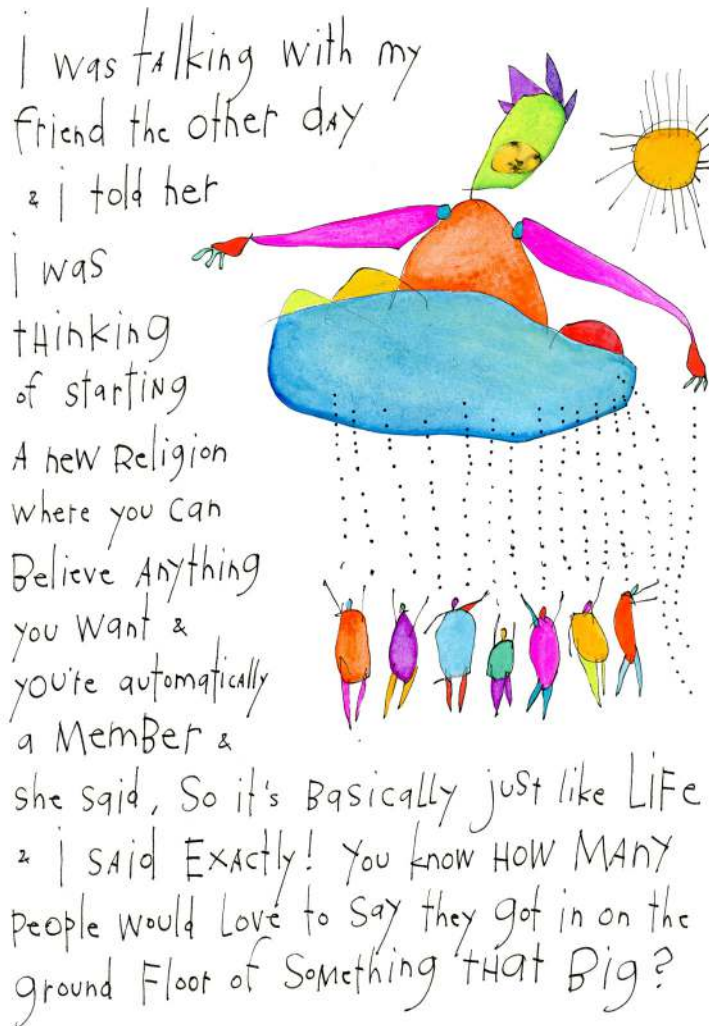 i was talking with my
friend the other day
& i told her
i was
thinking
of starting
A new Religion
where you can
Believe Anything
you want &
you're automatically
a Member &
she said, So it's Basically just like Life
& i said Exactly! You know How Many
people would Love to Say they got in on the
ground Floor of Something that Big?